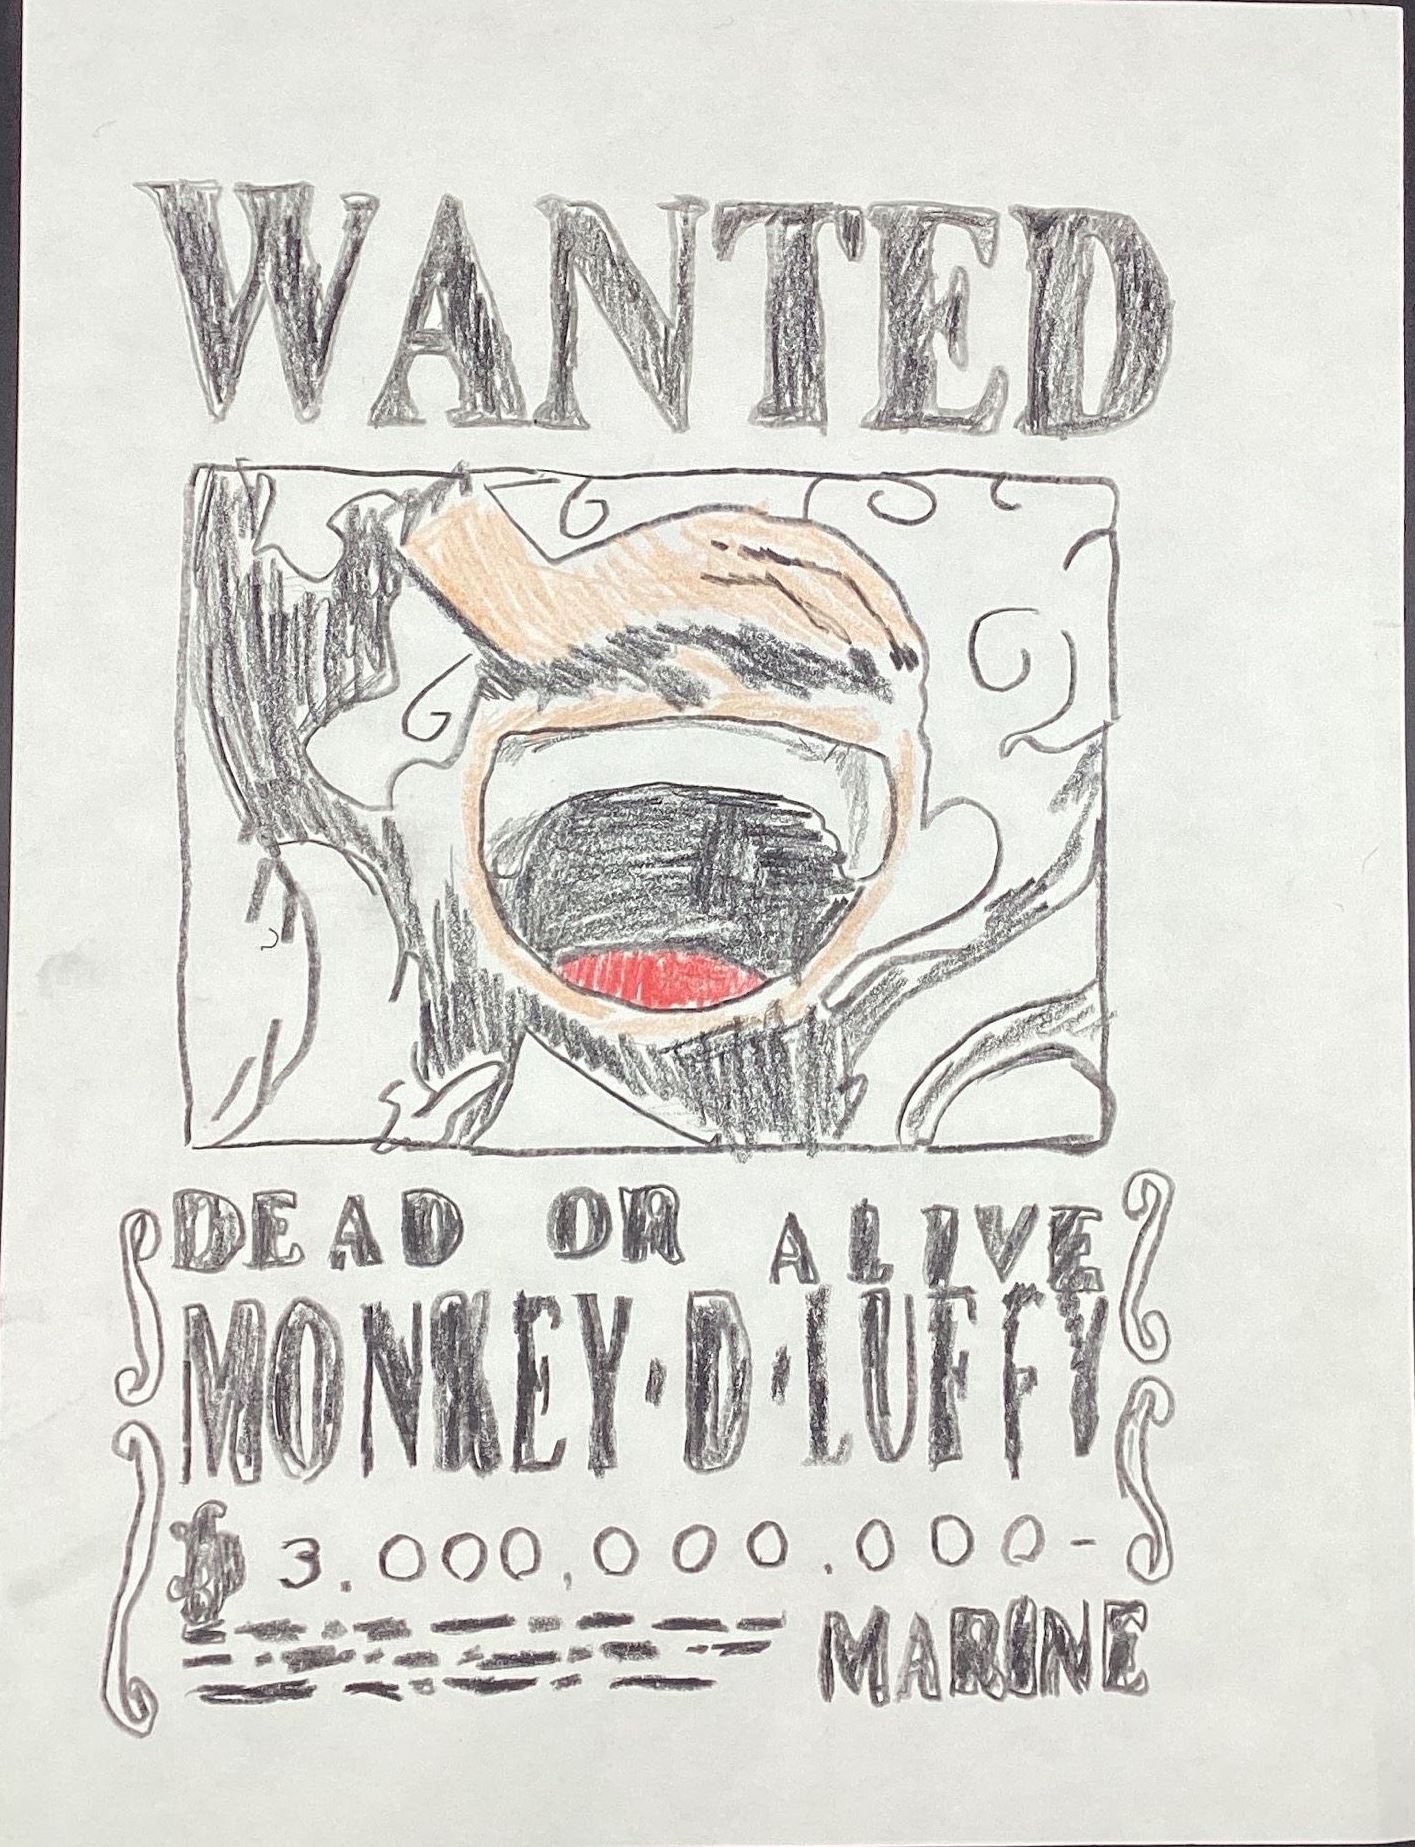 WANTED
DEAD OR ALIVE
MONKEY·D·LUFFY
฿ 3.000,000.000-
MARINE